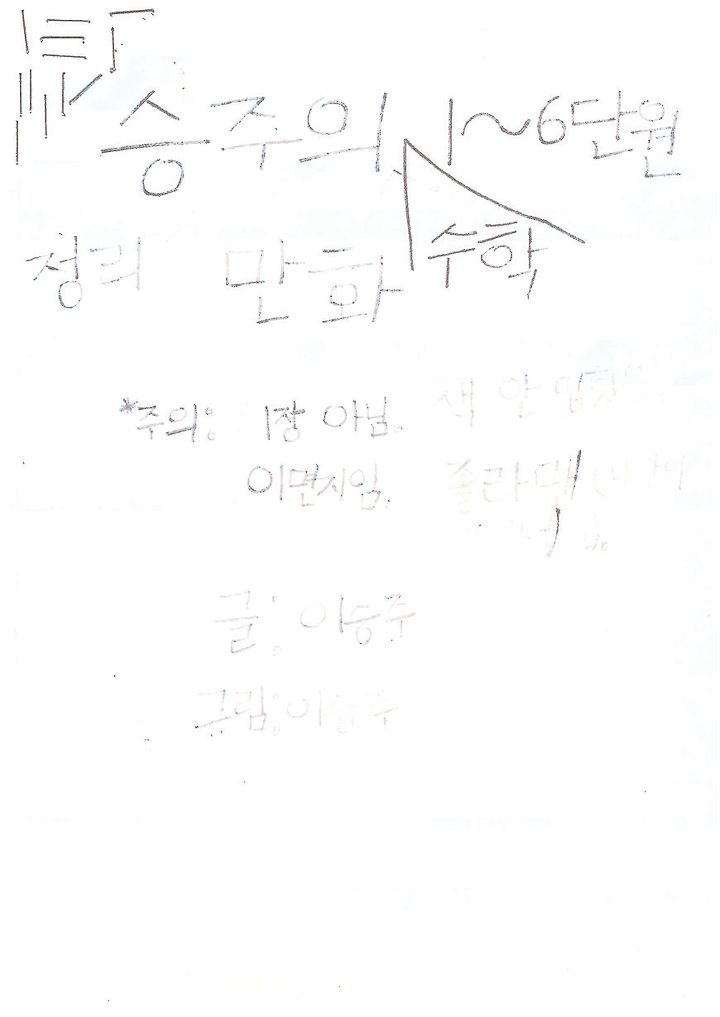 승주의 1~6단원
수학
정리 만화
*주의: 1장 아님. 색 안
이면지임. 졸라맨
글: 이승주
그림: 이승주